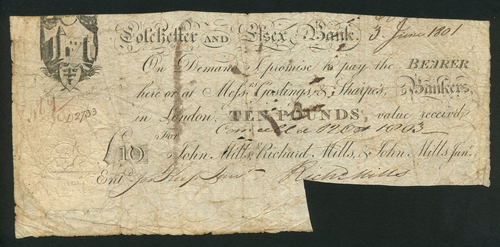 Colchester AND Essex Bank. 3 June 1801
On Demand I promise to pay the BEARER
here or at Messrs. Gostlings, & Sharpe's, Bankers,
D2783
in London, TEN POUNDS, value received
For
£10 John Mills, Richard Mills, & John Mills Junr.
Entd. Junr. Richd Mills